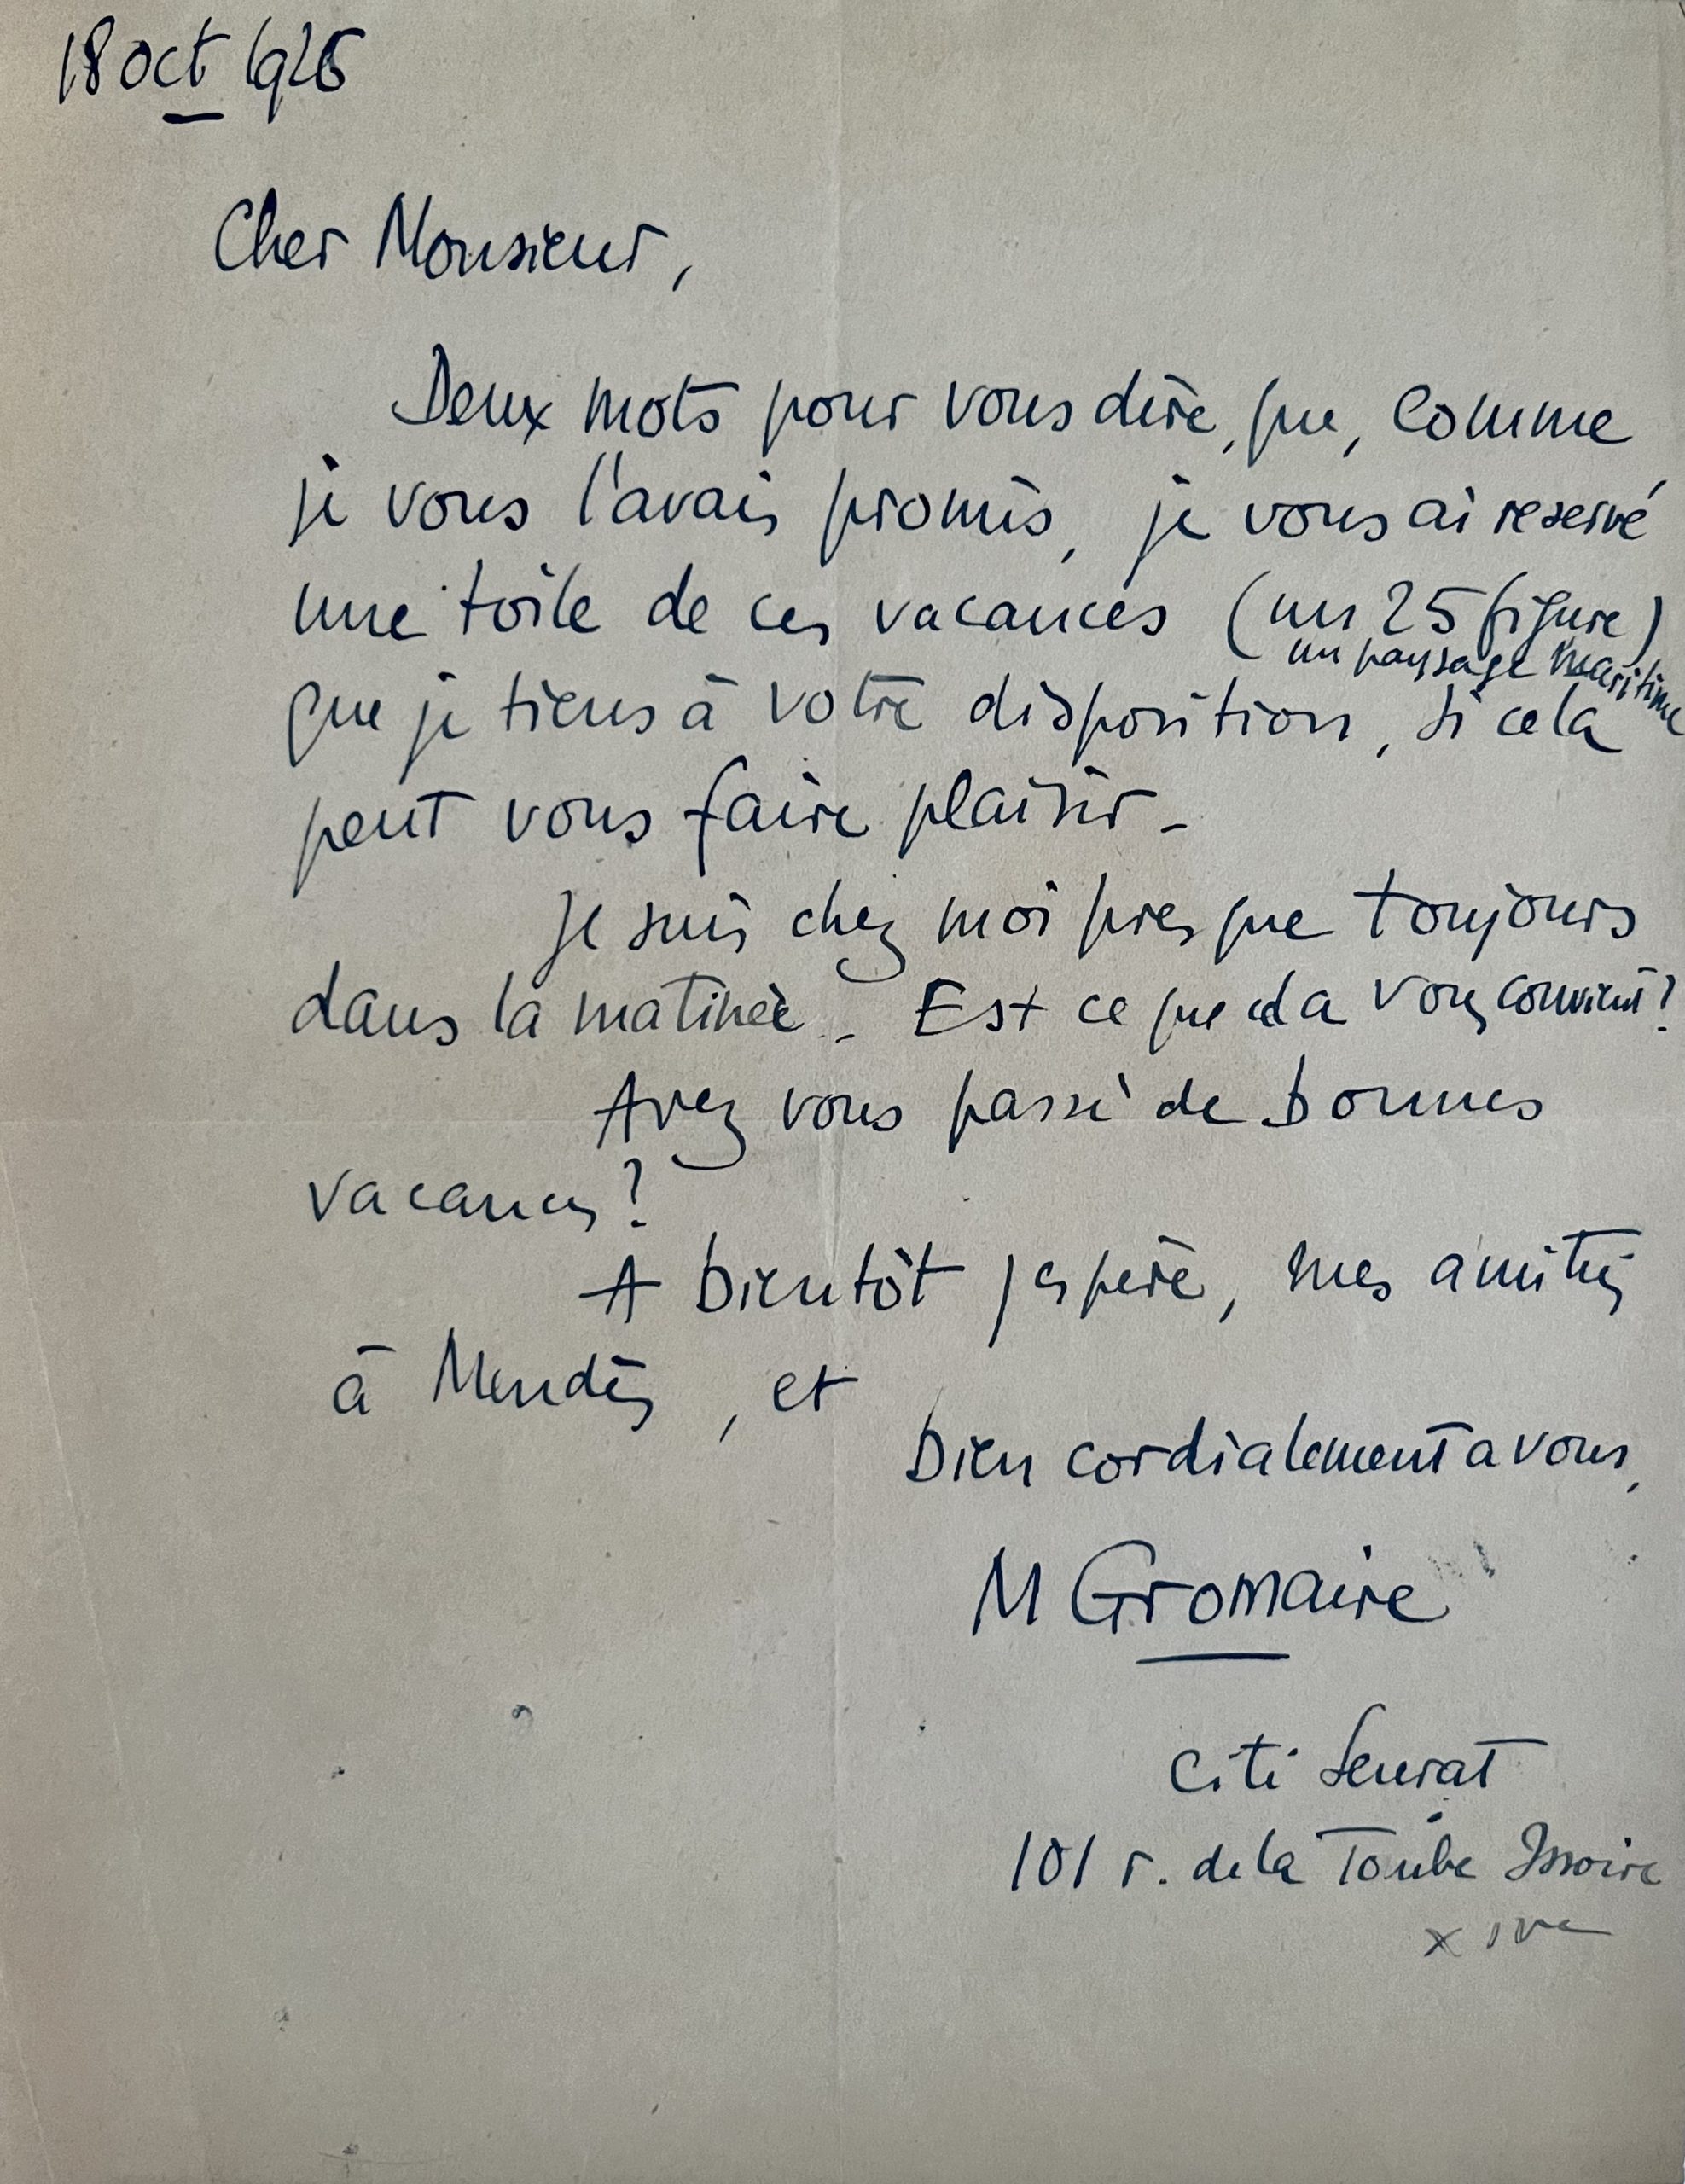 18 oct 1926
Cher Monsieur,
Deux mots pour vous dire, que, comme
je vous l'avais promis, je vous ai reservé
une toile de ces vacances (un 25 figure)
un paysage maritime
que je tiens à votre disposition, si cela
peut vous faire plaisir -
Je suis chez moi presque toujours
dans la matinée - Est ce que cela vous convient?
Avez vous passé de bonnes
vacances?
A bientôt j'espère, mes amitiés
à Mendès, et
bien cordialement a vous,
M Gromaire
Cité Seurat
101 r. de la Tombe Issoire
XIVe